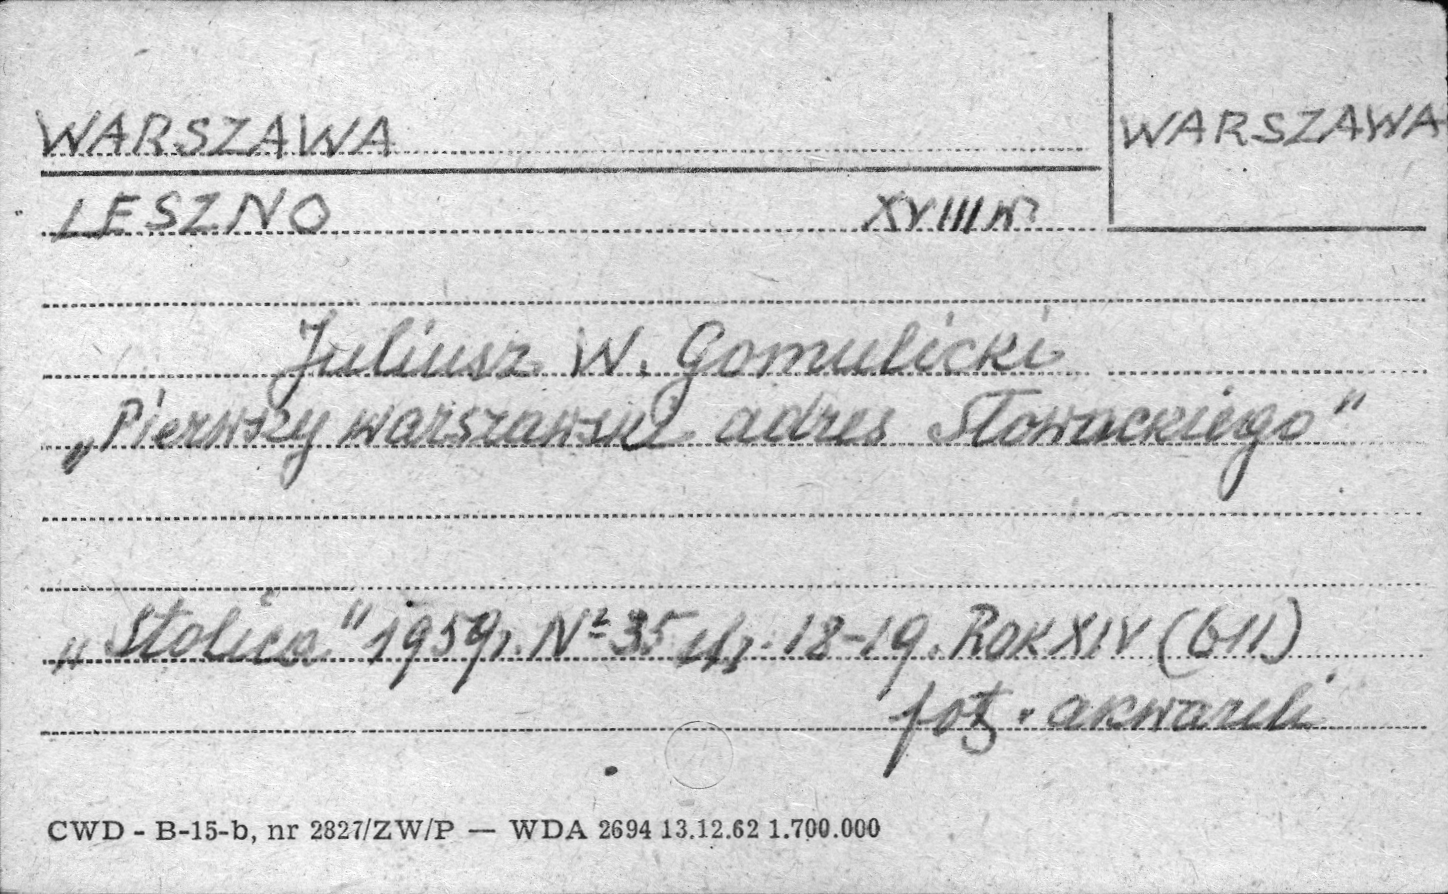 WARSZAWA
WARSZAWA
LESZNO XVIII w.
Juliusz W. Gomulicki
„Pierwszy warszawski adres Słowackiego"
„Stolica" 1959 r. Nº 35 str. 18-19. Rok XIV (611)
fot. akwareli
CWD - B-15-b, nr 2827/ZW/P — WDA 2694 13.12.62 1.700.000